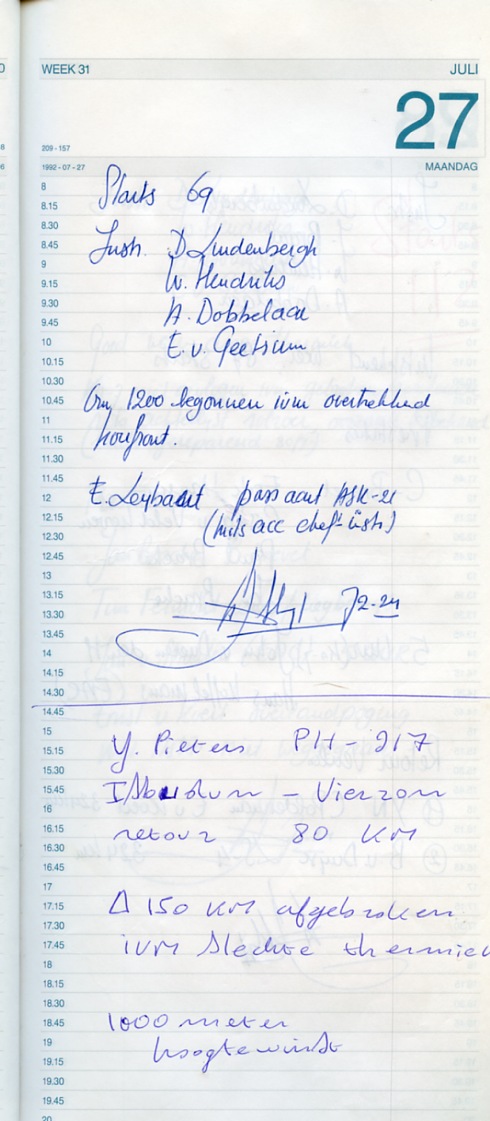 WEEK 31 JULI
27
209 - 157
1992 - 07 - 27 MAANDAG
8
8.15
8.30
8.45
9
9.15
9.30
9.45
10
10.15
10.30
10.45
11
11.15
11.30
11.45
12
12.15
12.30
12.45
13
13.15
13.30
13.45
14
14.15
14.30
14.45
15
15.15
15.30
15.45
16
16.15
16.30
16.45
17
17.15
17.30
17.45
18
18.15
18.30
18.45
19
19.15
19.30
19.45
20
Starts 69
Instr. D Lindenbergh
W. Hendriks
A. Dobbelaar
E. v. Geersum
Om 1200 begonnen ivm overtrekkend
koufront.
E. Leybaert pass aant ASK-21
(mits acc chef-instr)
J2-24
Y. Pieters PH - 917
Issoudun - Vierzon
retour 80 KM
Δ 150 KM afgebroken
ivm slechte thermiek
1000 meter
hoogtewinst